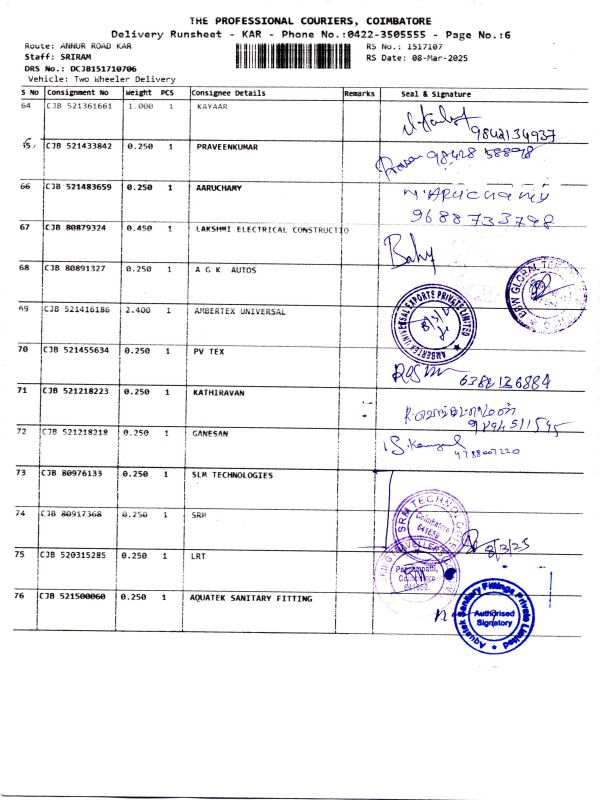 THE PROFESSIONAL COURIERS, COIMBATORE
Delivery Runsheet - KAR - Phone No.:0422-3505555 - Page No.:6
Route: ANNUR ROAD KAR RS No.: 1517107
Staff: SRIRAM RS Date: 08-Mar-2025
DRS No.: DCJB151710706
Vehicle: Two Wheeler Delivery
S No Consignment No Weight PCS Consignee Details Remarks Seal & Signature
64 CJB 521361661 1.000 1 KAYAAR
9842134937
65 CJB 521433842 0.250 1 PRAVEENKUMAR
98428 58898
66 CJB 521483659 0.250 1 AARUCHAMY
9688733798
67 CJB 80879324 0.450 1 LAKSHMI ELECTRICAL CONSTRUCTIO
68 CJB 80891327 0.250 1 A G K AUTOS
69 CJB 521416186 2.400 1 AMBERTEX UNIVERSAL
AMBERTEX UNIVERSAL EXPORTS PRIVATE LIMITED
70 CJB 521455634 0.250 1 PV TEX
71 CJB 521218223 0.250 1 KATHIRAVAN
72 CJB 521218218 0.250 1 GANESAN
73 CJB 80976133 0.250 1 SLM TECHNOLOGIES
74 CJB 80917368 0.250 1 SRM
SRM TECHNO
Coimbatore
8/3/25
75 CJB 520315285 0.250 1 LRT
Coimbatore
76 CJB 521500060 0.250 1 AQUATEK SANITARY FITTING
Aquatek Sanitary Fittings Private Limited
Authorised
Signatory